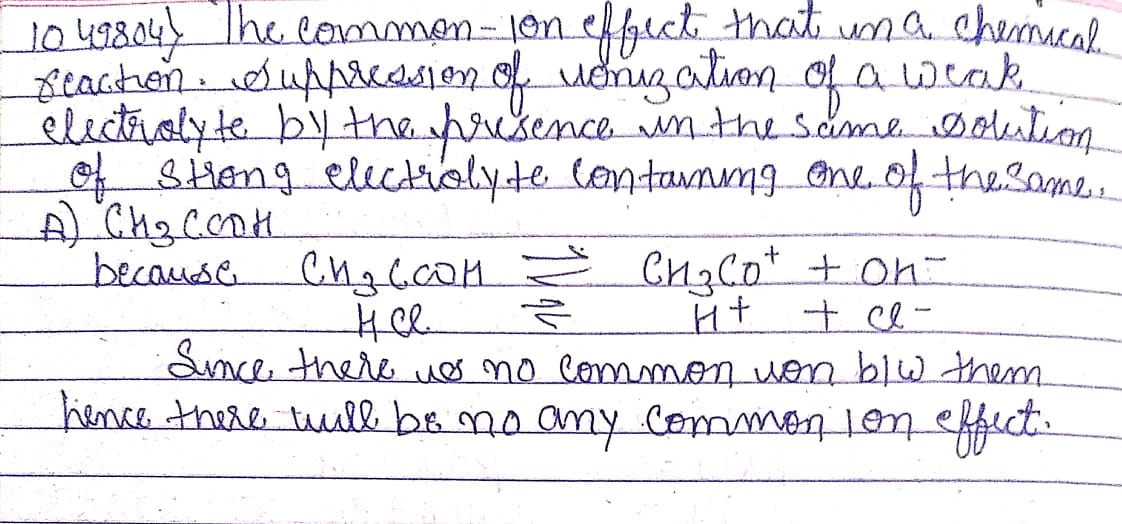 1049804} The common-ion effect that in a chemical
reaction. Suppression of ionization of a weak
electrolyte by the presence in the same solution
of strong electrolyte containing one of the same.
A) CH3COOH
because CH3COOH ⇌ CH3CO⁺ + OH⁻
HCl ⇌ H⁺ + Cl⁻
Since there is no common ion b/w them
hence there will be no any common ion effect.